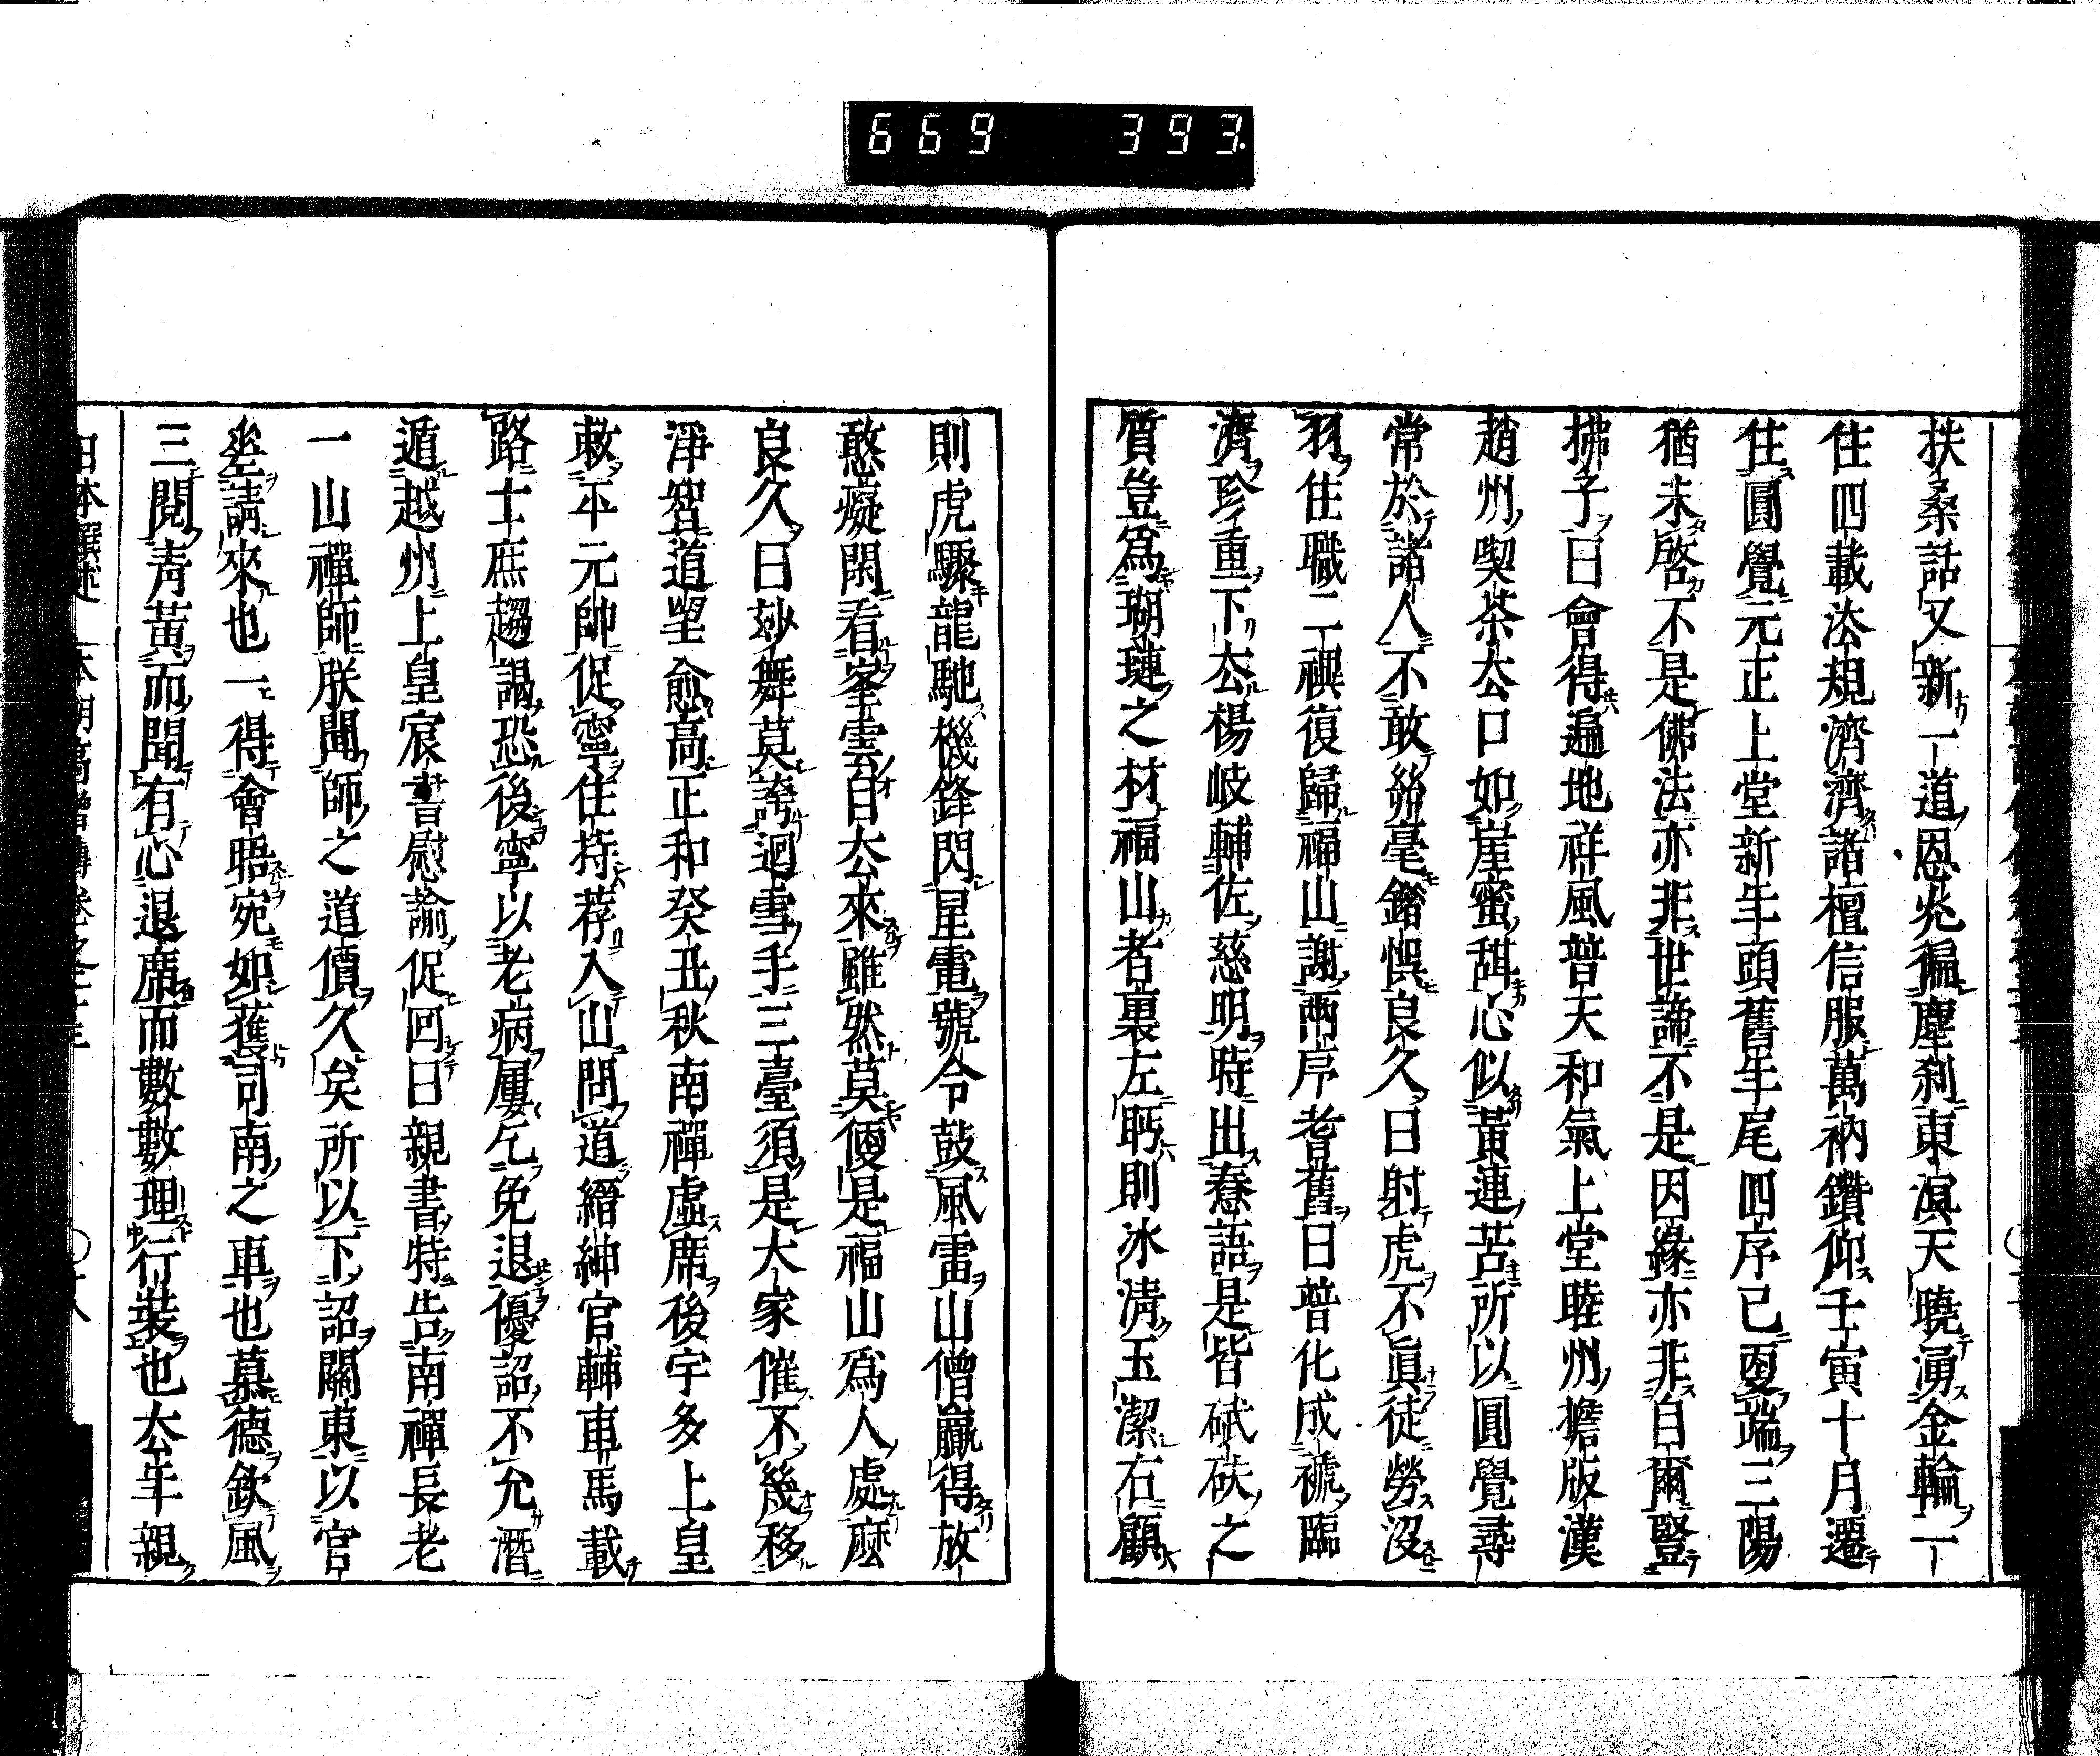 669 393
扶桑話又新一道恩光徧塵刹東溟天曉湧金輪一
住四載法規濟濟諸檀信服萬衲鑽仰壬寅十月遷
住圓覺元正上堂新年頭舊年尾四序已更端三陽
猶未啓不是佛法亦非世諦不是因緣亦非自爾豎
拂子曰會得遍地祥風普天和氣上堂睦州擔版漢
趙州喫茶去口如崖蜜甜心似黃連苦所以圓覺尋
常於諸人不敢絲毫錯悞良久曰射虎不眞徒勞沒
羽住職二禩復歸福山謝兩序耆舊曰普化成褫臨
濟珍重下去楊岐輔佐慈明時出惷語是皆碔砆之
質豈爲瑚璉之材福山者裏左眄則冰清玉潔右顧
則虎驟龍馳機鋒閃星電號令鼓風雷山僧贏得放
憨癡閑看峯雲自去來雖然莫便是福山爲人處麼
良久曰玅舞莫誇迴雪手三臺須是大家催不幾移
淨智道望愈高正和癸丑秋南禪虛席後宇多上皇
敕平元帥促寧住持荐入山問道縉紳官輔車馬載
路士庶趨謁恐後寧以老病屢乞免退優詔不允潛
遁越州上皇宸書慰諭促回曰親書特告南禪長老
一山禪師朕聞師之道價久矣所以下詔關東以官
差請來也一得會晤宛如獲司南之車也慕德欽風
三閱靑黃而聞有心退席而數數理行裝也去年親
日本撰述 本朝高僧傳卷之二十三